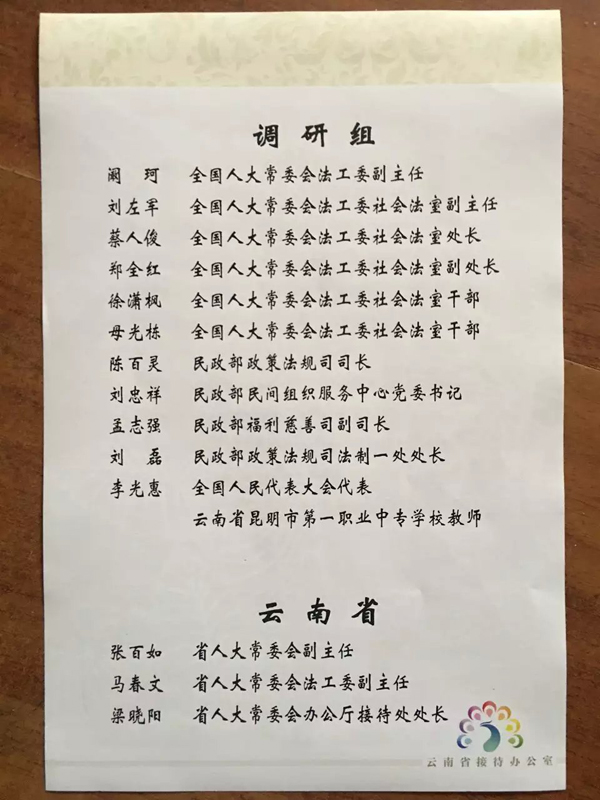 调研组
阚 珂 全国人大常委会法工委副主任
刘左军 全国人大常委会法工委社会法室副主任
蔡人俊 全国人大常委会法工委社会法室处长
郑全红 全国人大常委会法工委社会法室副处长
徐潇枫 全国人大常委会法工委社会法室干部
母光栋 全国人大常委会法工委社会法室干部
陈百灵 民政部政策法规司司长
刘忠祥 民政部民间组织服务中心党委书记
孟志强 民政部福利慈善司副司长
刘 磊 民政部政策法规司法制一处处长
李光惠 全国人民代表大会代表
云南省昆明市第一职业中专学校教师
云南省
张百如 省人大常委会副主任
马春文 省人大常委会法工委副主任
梁晓阳 省人大常委会办公厅接待处处长
云南省接待办公室